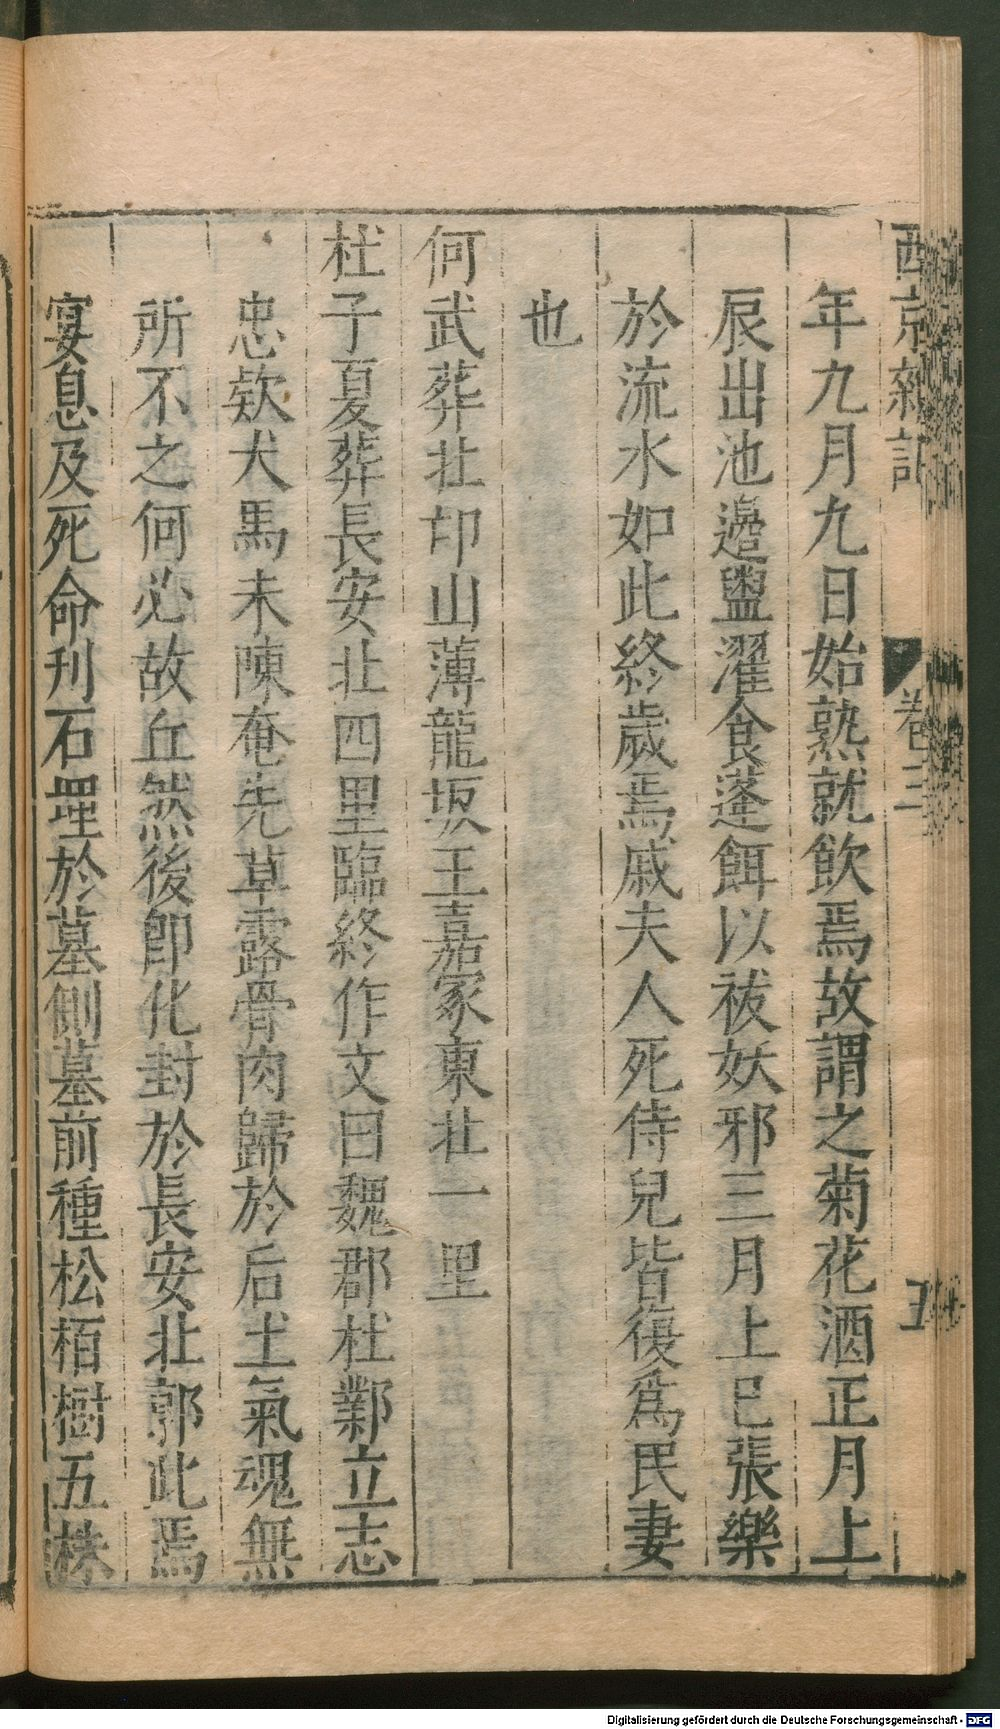 西京雜記 卷三 五
年九月九日始熟就飲焉故謂之菊花酒正月上
辰出池邊盥濯食蓬餌以祓妖邪三月上巳張樂
於流水如此終歲焉戚夫人死侍兒皆復爲民妻
也
何武葬北邙山薄龍坂王嘉冢東北一里
杜子夏葬長安北四里臨終作文曰魏郡杜鄴立志
忠欵犬馬未陳奄先草露骨肉歸於后土氣魂無
所不之何必故丘然後卽化封於長安北郭此焉
宴息及死命刋石埋於墓側墓前種松栢樹五株
Digitalisierung gefördert durch die Deutsche Forschungsgemeinschaft - DFG